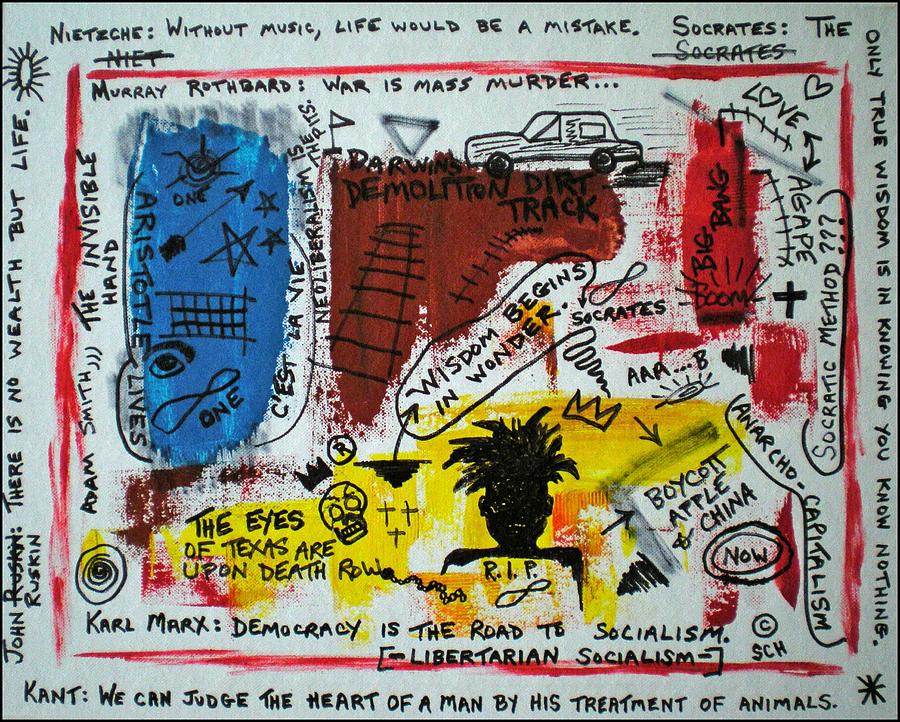 NIETZCHE: WITHOUT MUSIC, LIFE WOULD BE A MISTAKE.
NIET
SOCRATES: THE
SOCRATES
ONLY TRUE WISDOM IS IN KNOWING YOU KNOW NOTHING.
MURRAY ROTHBARD: WAR IS MASS MURDER...
JOHN RUSKIN: THERE IS NO WEALTH BUT LIFE.
RUSKIN
ADAM SMITH,,, THE INVISIBLE
HAND
ONE
ARISTOTLE LIVES
ONE
C'EST LA VIE
NEOLIBERALISM IS
THE PITS.
DARWINS
DEMOLITION DIRT
TRACK
WISDOM BEGINS
IN WONDER.
SOCRATES
BIG
BANG
BOOM
LOVE
AGAPE
SOCRATIC METHOD???
AAA...B
ANARCHO-CAPITALISM
BOYCOTT
APPLE
& CHINA
NOW
R
THE EYES
OF TEXAS ARE
UPON DEATH ROW
R.I.P.
KARL MARX: DEMOCRACY IS THE ROAD TO SOCIALISM.
[-LIBERTARIAN SOCIALISM-]
© SCH
KANT: WE CAN JUDGE THE HEART OF A MAN BY HIS TREATMENT OF ANIMALS.